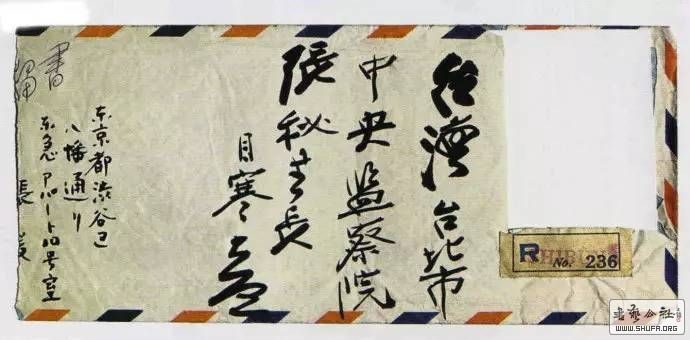 台灣台北市
中央監察院
張秘書長
目寒
書留
東京都渋谷区
八幡通り
東急アパート10号室
張爰
R No. 236
書藝公社
WWW.SHUFA.ORG